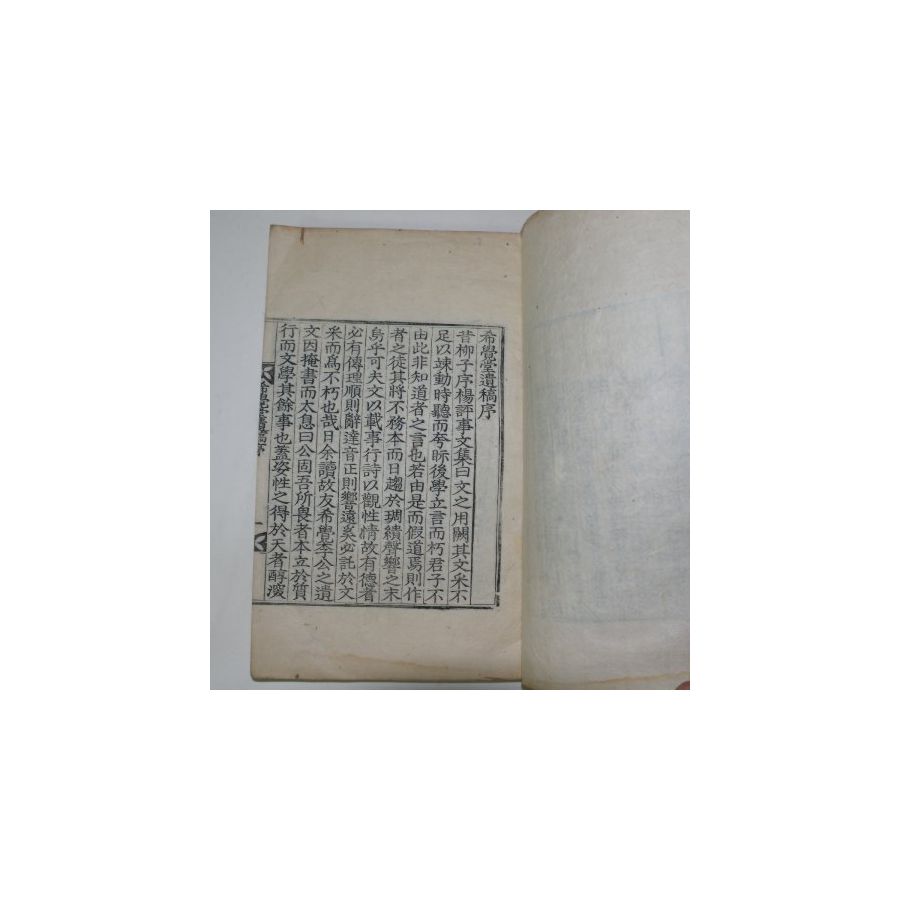 希覺堂遺稿序
昔柳子序楊評事文集曰文之用闕其文采不
足以竦動時聽而夸眎後學立言而朽君子不
由此非知道者之言也若由是而假道焉則作
者之徒其將不務本而日趨於琱繢聲響之末
烏乎可夫文以載事行詩以觀性情故有德者
必有傳理順則辭達音正則響遠矣必託於文
采而爲不朽也哉日余讀故友希覺李公之遺
文因掩書而太息曰公固吾所畏者本立於質
行而文學其餘事也蓋姿性之得於天者醇深
希覺堂遺稿序
一